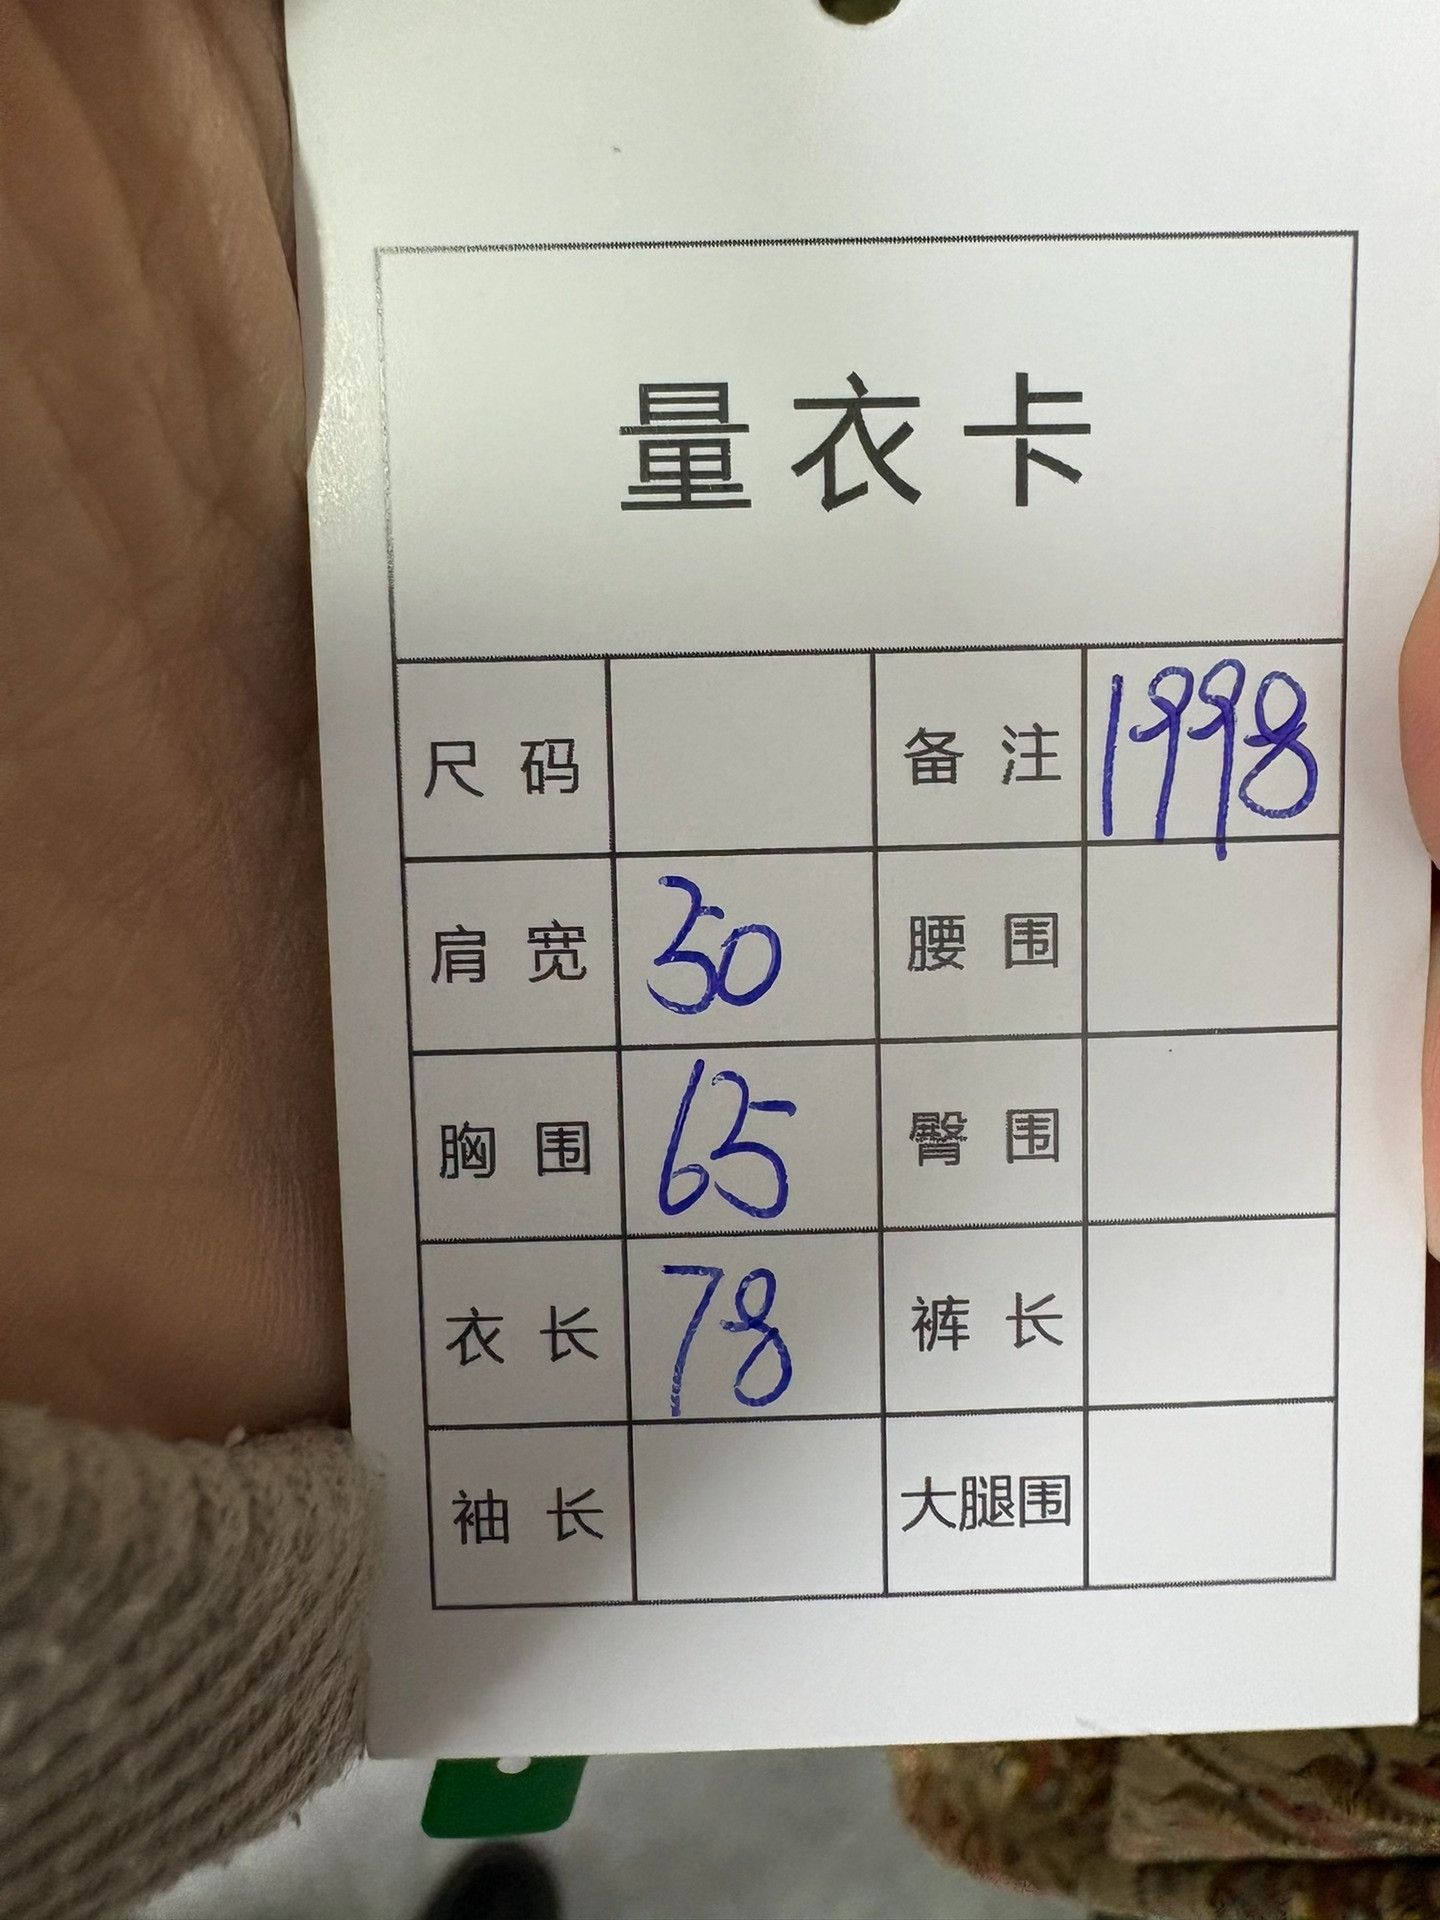 量衣卡
尺码 备注 1998
肩宽 50 腰围
胸围 65 臀围
衣长 78 裤长
袖长 大腿围